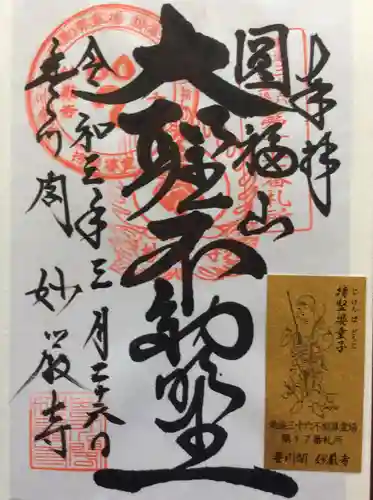 奉拝
圓福山
大聖不動尊
令和三年三月二十六日
豊川閣 妙厳寺
じけんば どうじ
持堅婆童子
東海三十六不動尊霊場
第17番札所
豊川閣 妙厳寺